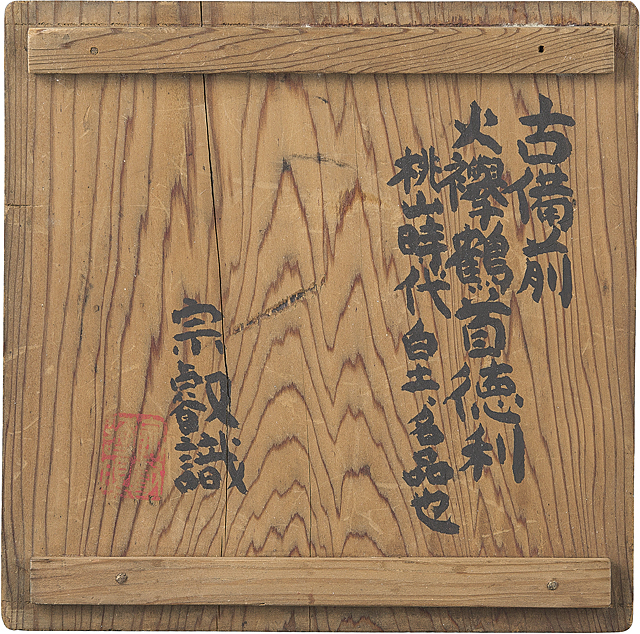 古備前
火襷鶴首徳利
桃山時代 白土、名品也
宗叡識